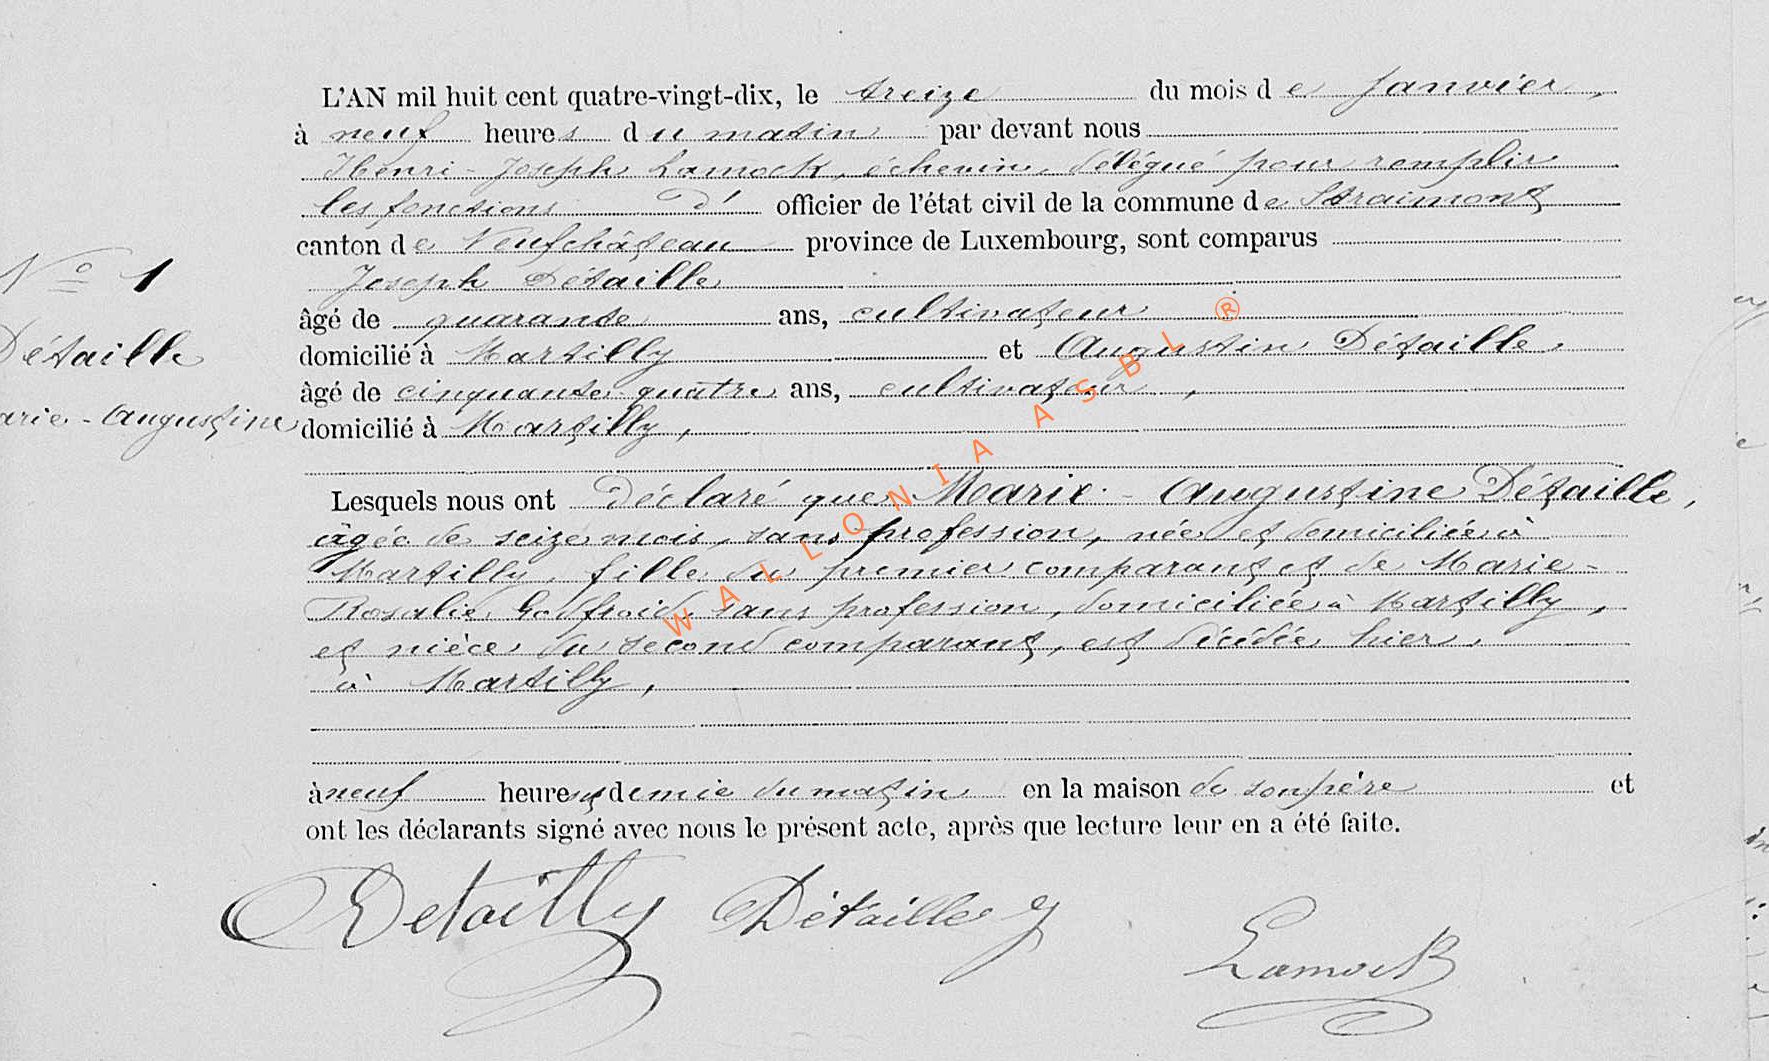 L'AN mil huit cent quatre-vingt-dix, le treize du mois de Janvier,
à neuf heures du matin par devant nous
Henri-Joseph Lamock, échevin, délégué pour remplir
les fonctions d' officier de l'état civil de la commune de Straimont
canton de Neufchâteau province de Luxembourg, sont comparus
N° 1
Joseph Détaille
âgé de quarante ans, cultivateur
Détaille
domicilié à Martilly et Augustin Détaille,
âgé de cinquante-quatre ans, cultivateur,
arie-Augustine
domicilié à Martilly,
Lesquels nous ont Déclaré que Marie-Augustine Détaille,
âgée de seize mois, sans profession, née et domiciliée à
Martilly, fille du premier comparant et de Marie-
Rosalie Godfroid, sans profession, domiciliée à Martilly,
et nièce du second comparant, est décédée hier,
à Martilly,
à neuf heures et demie du matin en la maison de son père et
ont les déclarants signé avec nous le présent acte, après que lecture leur en a été faite.
Detailly Détaille J Lamock
WALLONIA ASBL ®